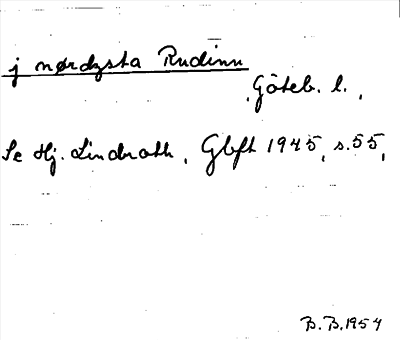 j nørdzsta Rudinu
Göteb. l.,
Se Hj. Lindroth, Gbft 1945, s. 55,
B. B. 1954